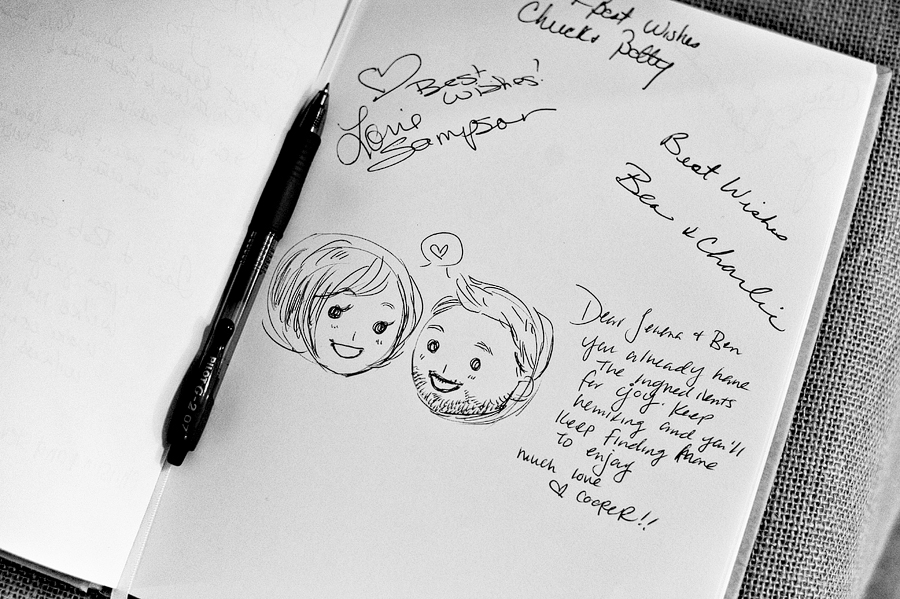 + Best Wishes
Chuck & Betty
Best
Wishes!
Lorie
Sampson
Best Wishes
Bea & Charlie
Dear & Ben
you already have
the ingredients
for joy. Keep
and you'll
keep finding
to enjoy
much love
COOPER!!
PILOT G-2 07